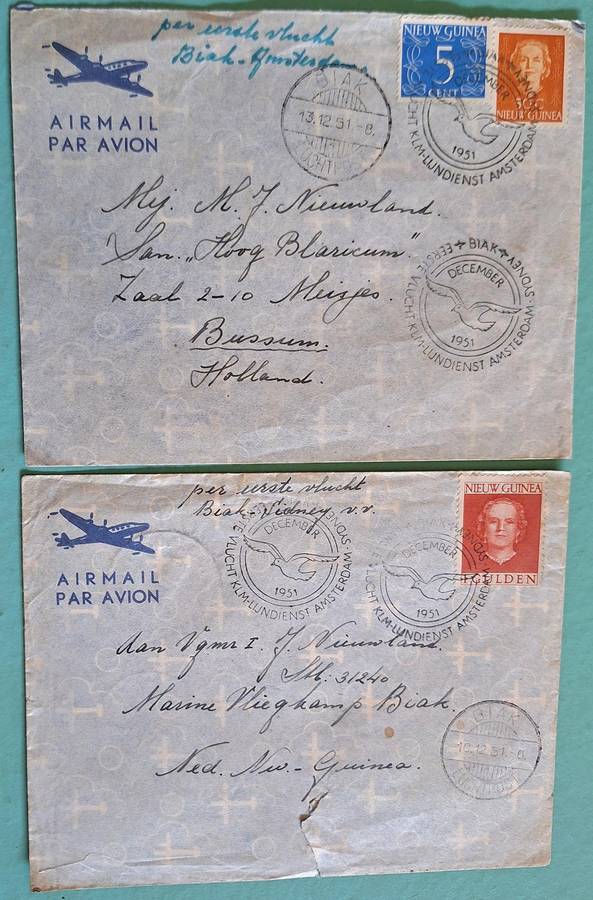 per eerste vlucht
Biak-Amsterdam
AIRMAIL
PAR AVION
NIEUW GUINEA
5
CENT
50C
NIEUW GUINEA
BIAK
13.12.51.-8.
LUCHTPOST
1951
EERSTE VLUCHT KLM-LIJNDIENST AMSTERDAM-SYDNEY
Mej. M. J. Nieuwland.
San. „Hoog Blaricum"
Zaal 2-10 Meisjes.
Bussum.
Holland.
BIAK
DECEMBER
1951
EERSTE VLUCHT KLM-LIJNDIENST AMSTERDAM-SYDNEY
per eerste vlucht
Biak-Sidney v.v.
AIRMAIL
PAR AVION
NIEUW GUINEA
1 GULDEN
DECEMBER
1951
EERSTE VLUCHT KLM-LIJNDIENST AMSTERDAM-SYDNEY
DECEMBER
1951
EERSTE VLUCHT KLM-LIJNDIENST AMSTERDAM-SYDNEY
Aan Vgmr I. J. Nieuwland.
Stb: 31240
Marine Vliegkamp Biak.
Ned. Nw.-Guinea.
BIAK
12.51.-8.
LUCHTPOST